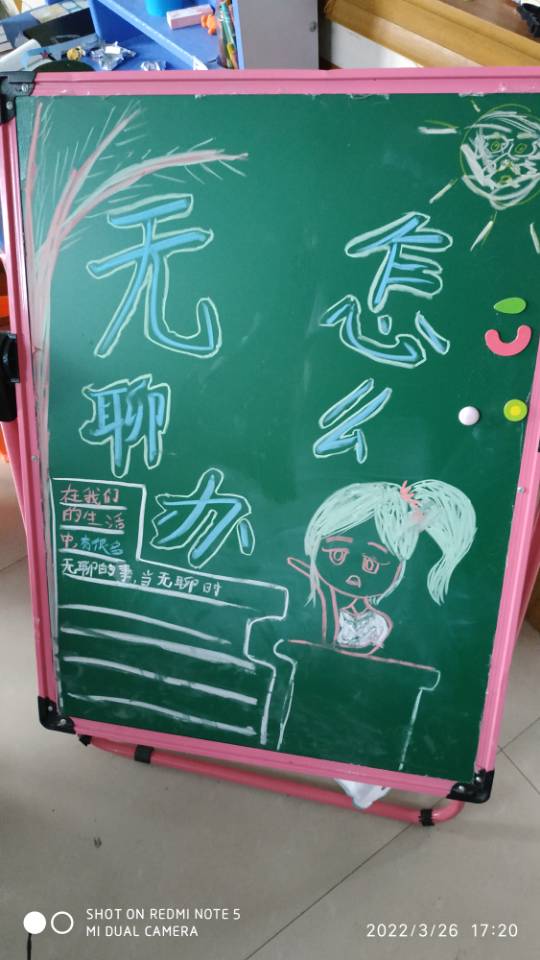 无 怎
聊 么
办
在我们
的生活
中,有很多
无聊的事,当无聊时
SHOT ON REDMI NOTE 5
MI DUAL CAMERA
2022/3/26 17:20